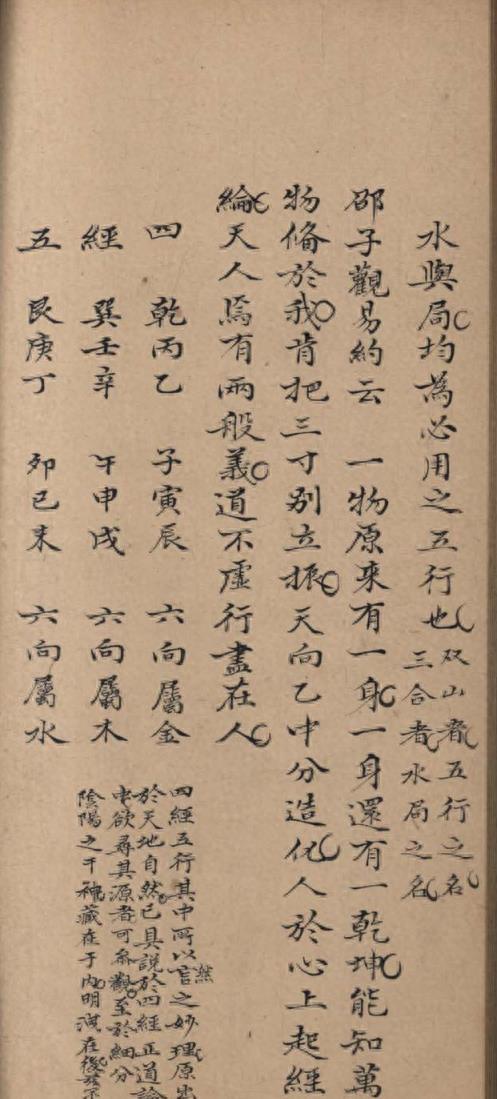 水與局均為必用之五行也
双山者五行之名
三合者水局之名
邵子觀易約云 一物原來有一身一身還有一乾坤能知萬
物俻於我肯把三寸别立振天向乙中分造化人於心上起經
綸天人焉有兩般義道不虛行盡在人
四 乾丙乙 子寅辰 六向屬金
經 巽壬辛 午申戌 六向屬木
五 艮庚丁 卯巳未 六向屬水
四經五行其中所以言然之妙理原出
於天地自然已具說於四經正道論
中欲尋其源者可叅觀至於細分
陰陽之干神藏在于內明河在後